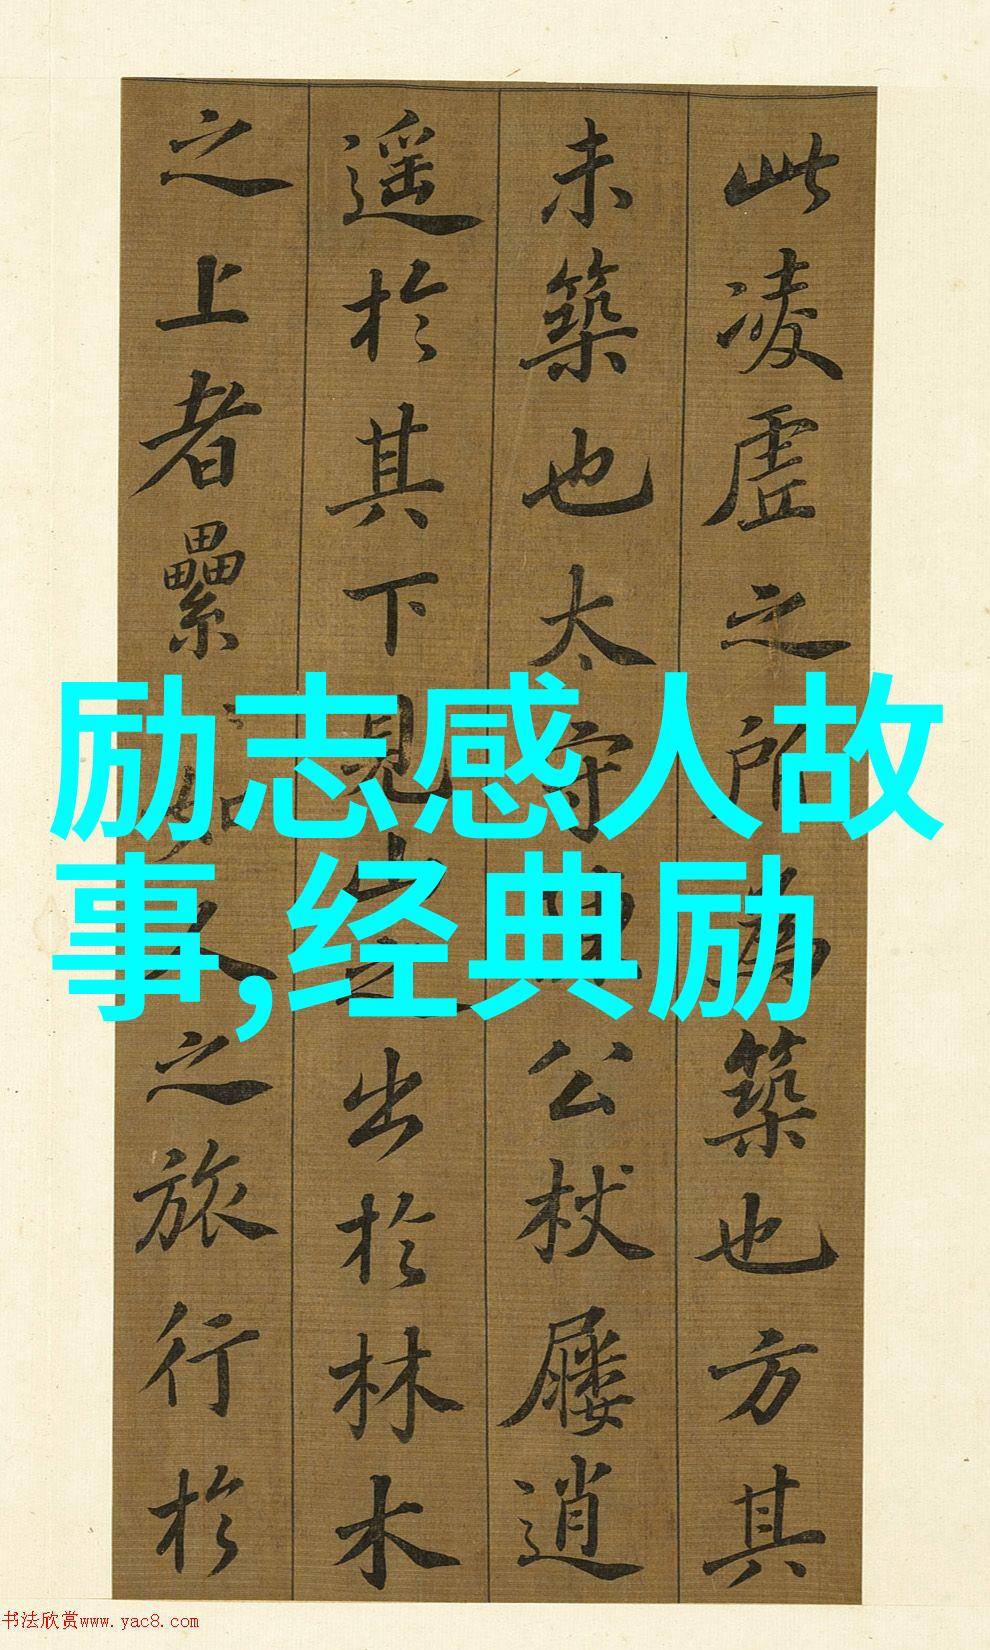 此凌虗之所為築也方其
未築也太守陳公杖屨逍
遥於其下見山之出於林木
之上者纍纍如人之旅行於
励志感人故
事,经典励
书法欣赏www.yac8.com